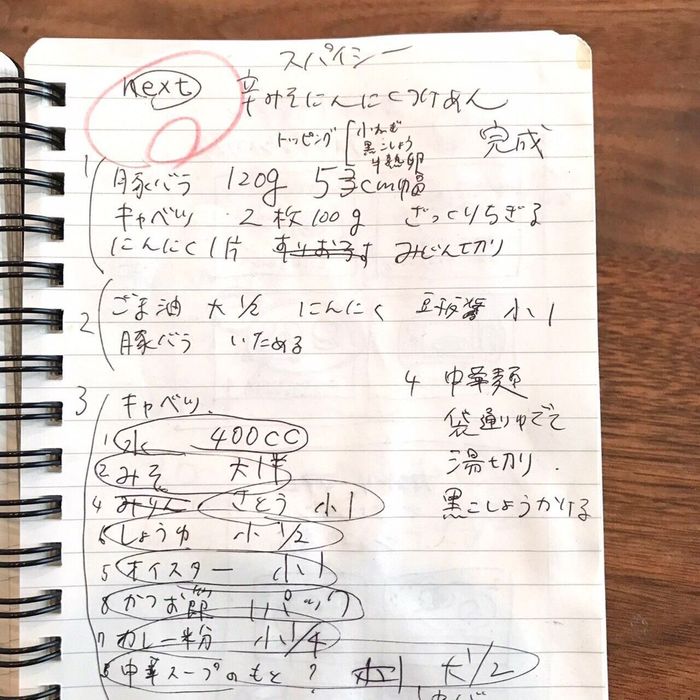 スパイシー
next 辛みそにんにくつけめん
トッピング 小ねぎ
黒こしょう
半熟卵
完成
1 豚バラ 120g 5 3cm幅
キャベツ 2枚100g ざっくりちぎる
にんにく1片 すりおろす みじん切り
2 ごま油 大1/2 にんにく 豆板醤 小1
豚バラ いためる
3 キャベツ、
1 水 400cc
2 みそ 大1半
4 みりん さとう 小1
6 しょうゆ 小1/2
5 オイスター 小1
8 かつお節 1パック
7 カレー粉 小1/4
8 中華スープのもと? 小1 大1/2
4 中華麺
袋通りゆでて
湯切り.
黒こしょうかける